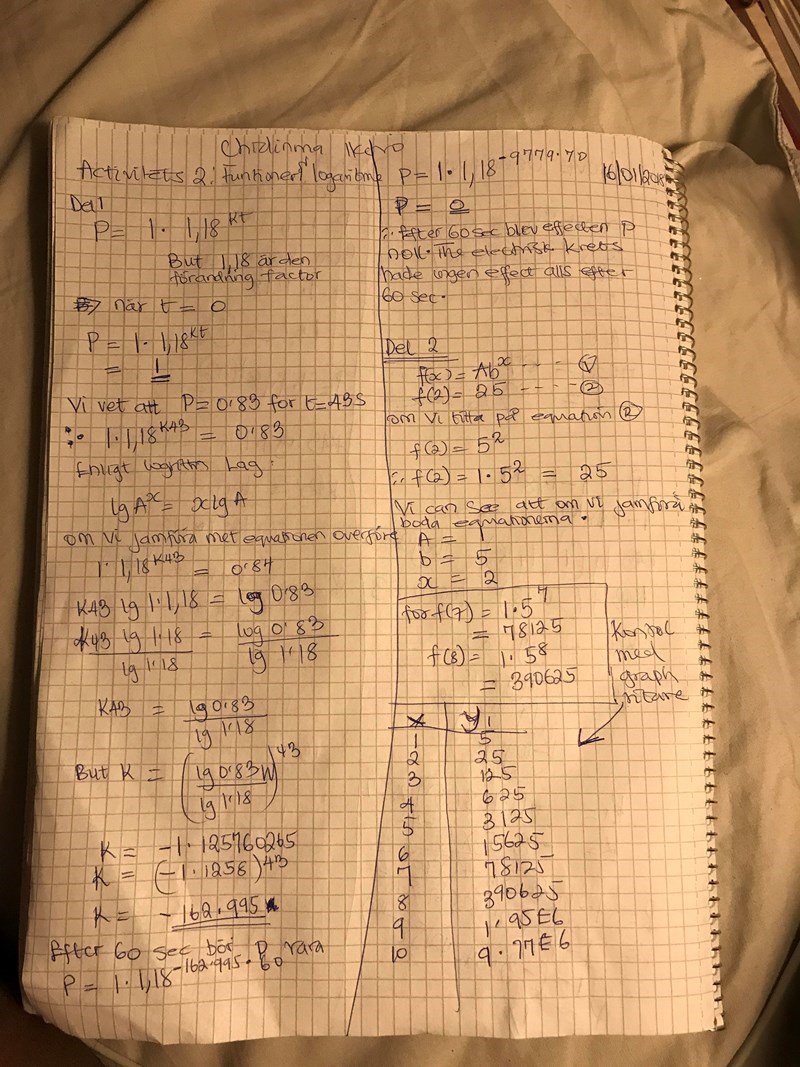 Chidinma Ikevo
Activitets 2: Funtioner/logaritme
Del 1
P = 1 · 1,18^Kt
But 1,18 är den
förändring factor
när t = 0
P = 1 · 1,18^Kt
= 1
Vi vet att P = 0.83 for t = 43 s
∴ 1 · 1,18^K43 = 0.83
Enligt logritm lag:
lg A^x = x lg A
om vi jamföra met equationen overföre
1 · 1,18^K43 = 0.84
K43 lg 1 · 1,18 = log 0.83
K43 lg 1.18 / lg 1.18 = log 0.83 / lg 1.18
K43 = lg 0.83 / lg 1.18
But K = (lg 0.83 / lg 1.18)^43
K = -1.125760265
K = (-1.1258)^43
K = -162.995
Efter 60 sec bör P vara
P = 1 · 1,18^-162.995 · 60
P = 1 · 1,18^-9779.70
16/01/2018
P = 0
∴ Efter 60 sec blev effecten P
noll. The electrisk krets
hade ingen effect alls efter
60 sec.
Del 2
f(x) = Ab^x ---- (1)
f(2) = 25 ---- (2)
om vi titta på equation (2)
f(2) = 5^2
∴ f(2) = 1 · 5^2 = 25
Vi can see att om vi jamföra
boda equationerna.
A = 1
b = 5
x = 2
for f(7) = 1 · 5^7
= 78125
f(8) = 1 · 5^8
= 390625
Kontrol
med
graph
ritare
x y1
1 5
2 25
3 125
4 625
5 3125
6 15625
7 78125
8 390625
9 1.95E6
10 9.77E6